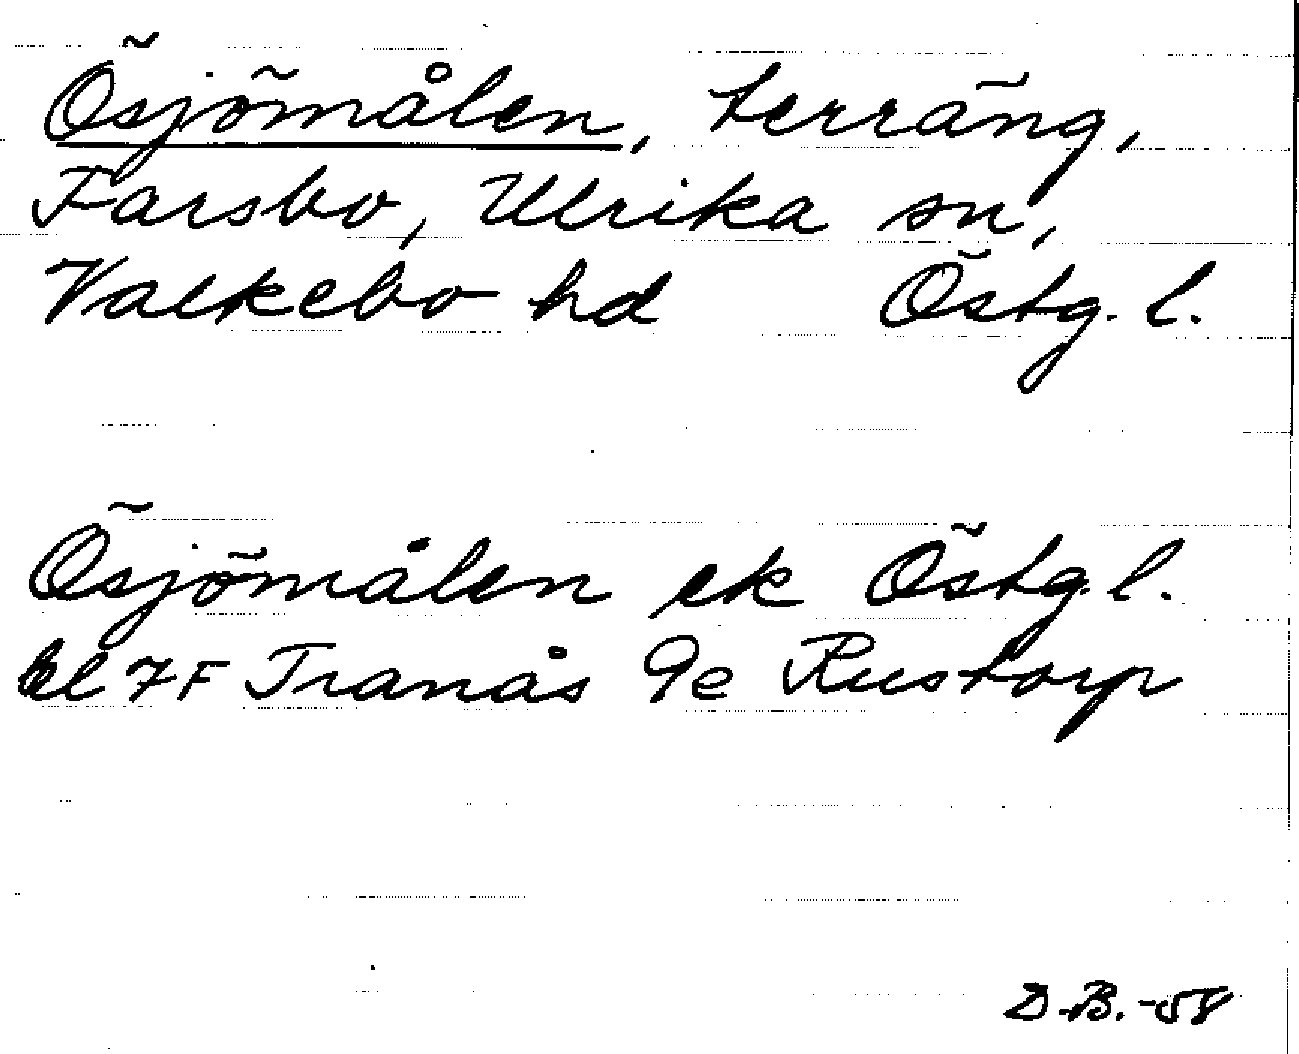 Ösjömålen, terräng,
Farsbo, Ulrika sn,
Valkebo hd Östg. l.
Ösjömålen ek Östg. l.
bl 7F Tranås 9e Rustorp
D.B.-58